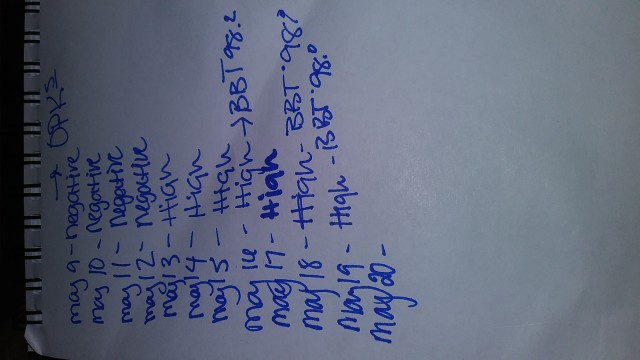 → OPK's
may 9 - negative
may 10 - negative
may 11 - negative
may 12 - negative
may 13 - High
may 14 - High
may 15 - High
may 16 - High → BBT 98.2
may 17 - High
may 18 - High - BBT: 98.?
may 19 - High - BBT: 98.0
may 20 -